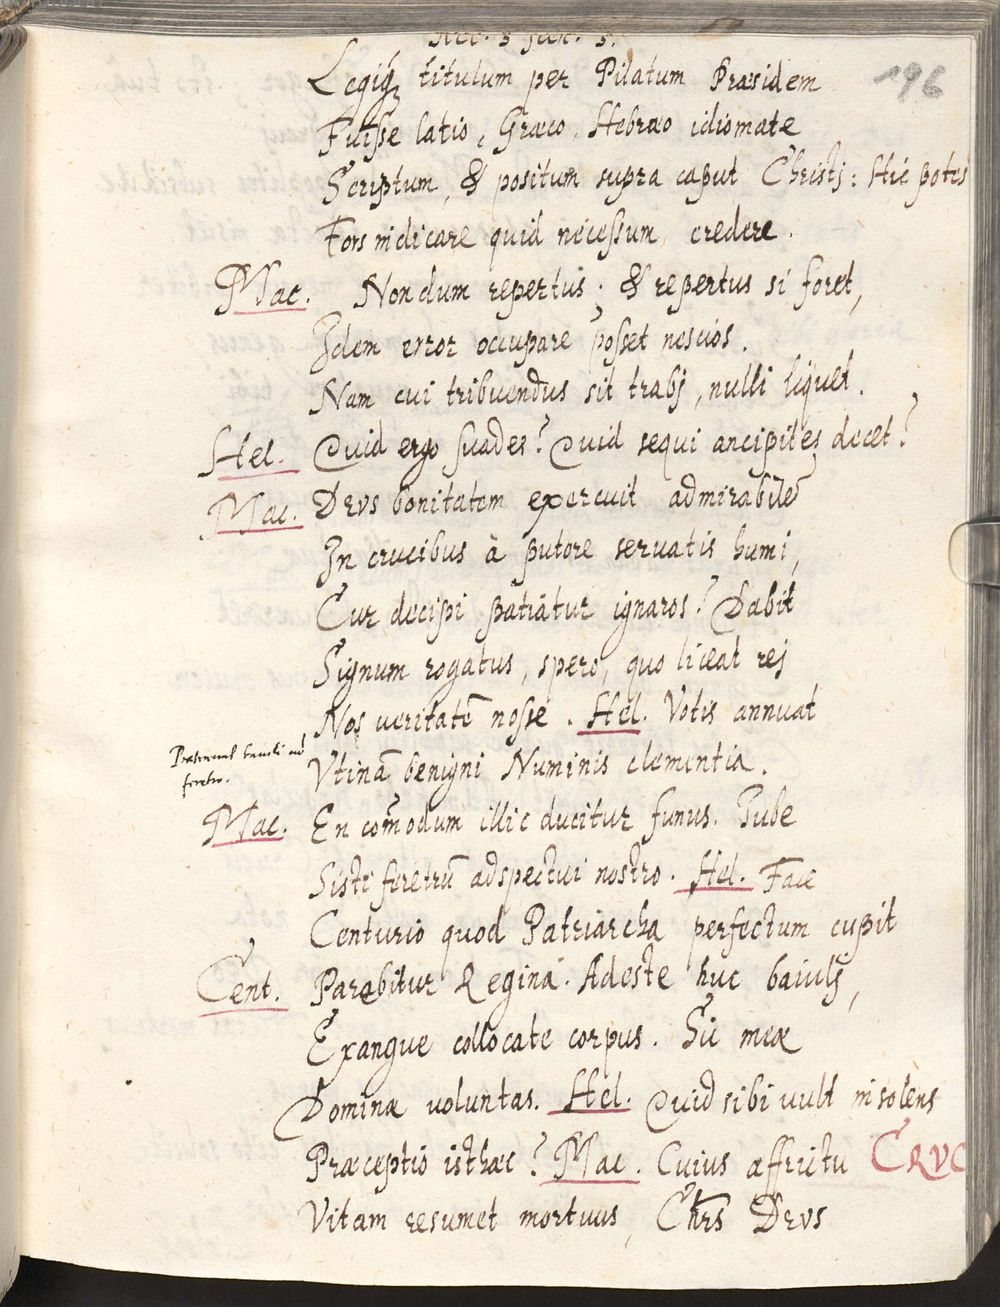 Act. 3 Scæn. 3.
196
Legiq; titulum per Pilatum Præsidem
Fuisse latio, Græco, Hebræo idiomate
Scriptum, & positum supra caput Christj: Hic potis
Fors indicare quid necessum credere.
Mac. Nondum repertus; & repertus si foret,
Idem error occupare posset nescios.
Nam cui tribuendus sit trabj, nulli liquet.
Hel. Quid ergo suades? Quid sequi ancipites decet?
Mac. Deus bonitatem exercuit admirabilē
In crucibus à putore servatis humi,
Cur decipi patiātur ignaros? Dabit
Signum rogatus, spero, quo liceat rej
Nos veritatē nosse. Hel. Votis annuat
Vtinā benigni Numinis clementia.
feretro.
Mac. En com̄odum illic ducitur funus. Iube
Sisti feretrū adspectui nostro. Hel. Face
Centurio quod Patriarcha perfectum cupit
Cent. Parebitur Regina. Adeste huc baiulj,
Exangue collocate corpus. Sic meæ
Dominæ voluntas. Hel. Quid sibi vult insolens
Præceptio isthæc? Mac. Cuius affrictu CRVC
Vitam resumet mortuus, Chrs Deus